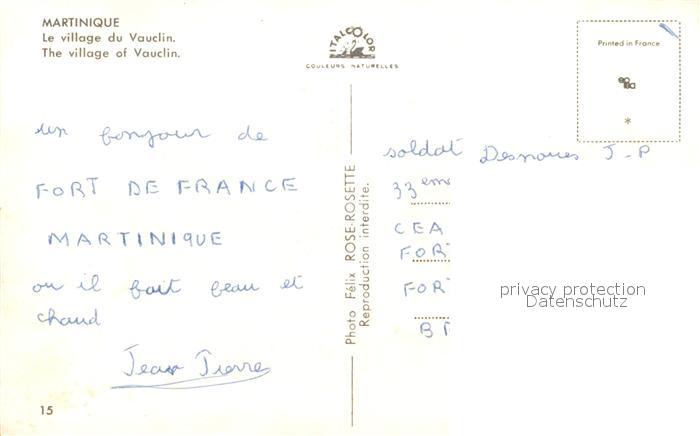 MARTINIQUE
Le village du Vauclin.
The village of Vauclin.
ITALCOLOR
COULEURS NATURELLES
Printed in France
un bonjour de
FORT DE FRANCE
MARTINIQUE
ou il fait beau et
chaud
Jean Pierre
15
Photo Félix ROSE-ROSETTE
Reproduction interdite.
soldat Desnoues J-P
33 eme
CEA
FOR
FOR
privacy protection
Datenschutz